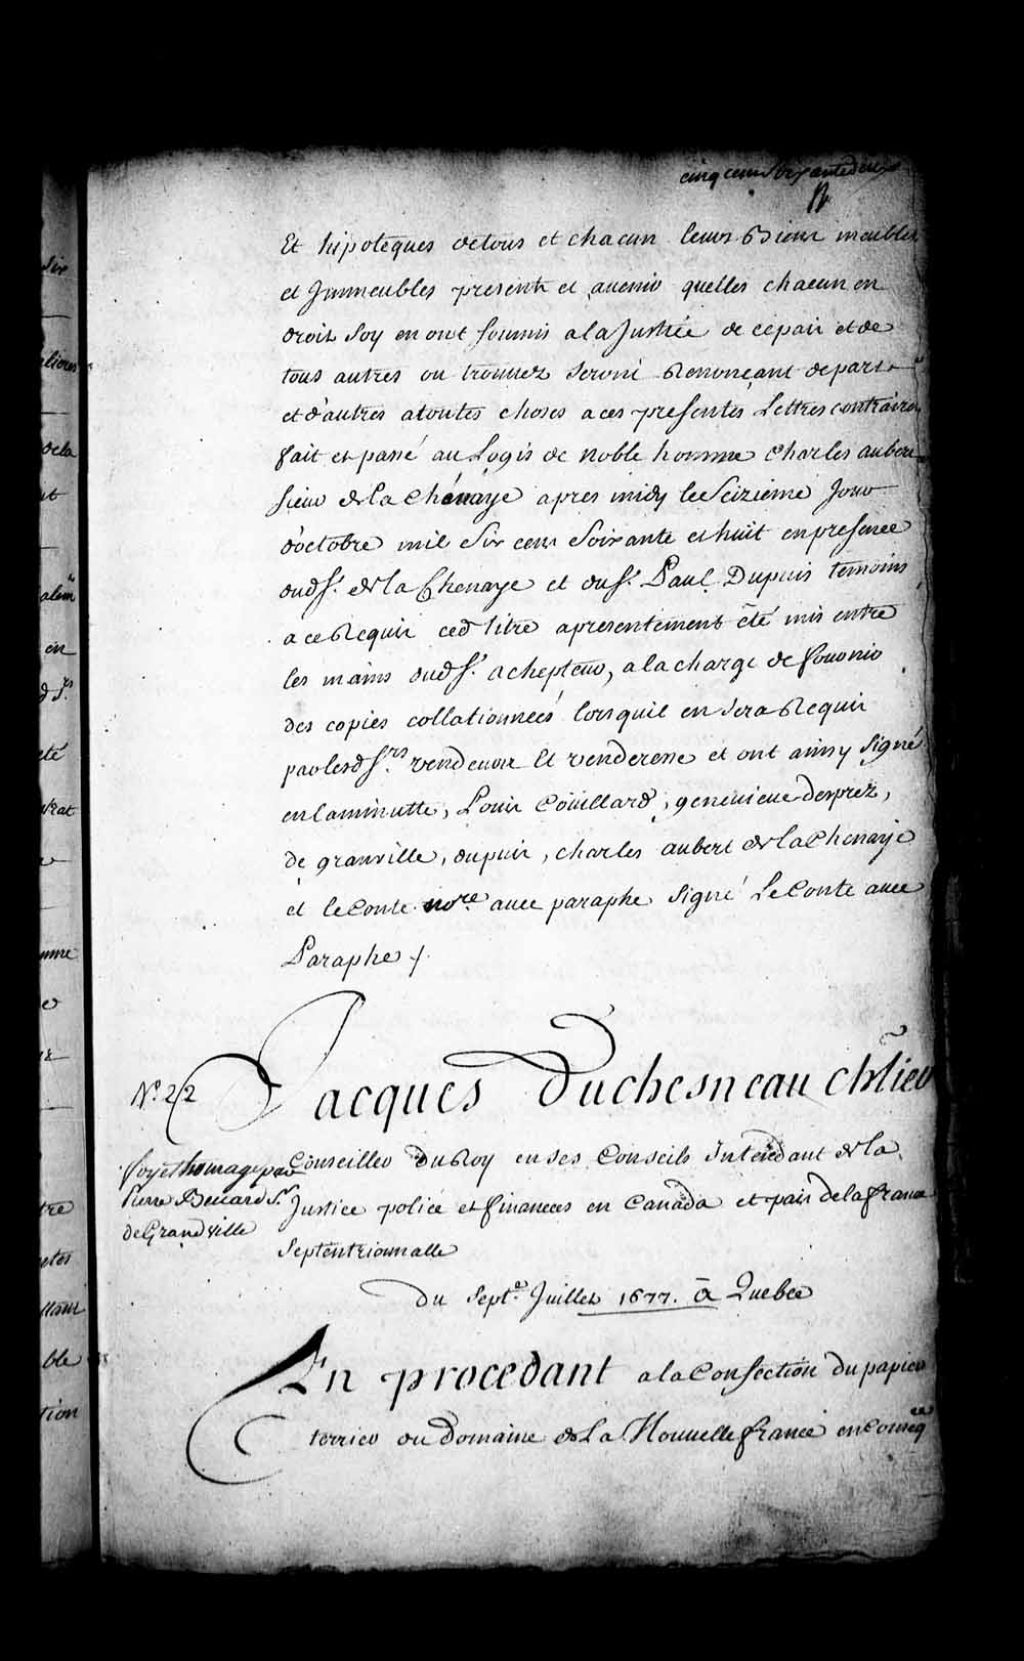 cinq cens soixante deux
Et hipoteques de tous et chacun leurs Biens meubles
et Immeubles presents et avenir quelles chacun en
droit soy en ont soumis a la Justice de ce pais et de
tous autres ou trouvez seront Renonçant de part
et d'autres a toutes choses a ces presentes Lettres contraires
fait et passé au Logis de noble homme Charles aubert
sieur de la Chénaye apres midy le Seizieme Jour
d'octobre mil six cens soixante et huit en presence
dud sr. de la Chenaye et du sr. Paul Dupuis temoins
a ce Requis ced titre a presentement été mis entre
les mains dud sr. achepteur, a la charge de fournir
des copies collationneés lorsquil en sera Requis
par lesd srs vendeur et venderesse et ont ainsy signé
en la minutte, Louis Coüillard, genevieve desprez,
de granville, dupuis, charles aubert de la Chenaye
et leConte nore avec paraphe signé LeConte avec
Paraphe /.
Jacques Duchesneau chllier
No. 22
Conseiller du Roy en ses Conseils Intendant de la
foy et homage par
Pierre Becard Sr.
de Grandville
Justice police et finances en Canada et païs de la france
Septentrionnalle
du Sept.e Juillet 1677. à Quebec
En procedant a la Confection du papier
terrier du Domaine de La Nouvelle france en conseq